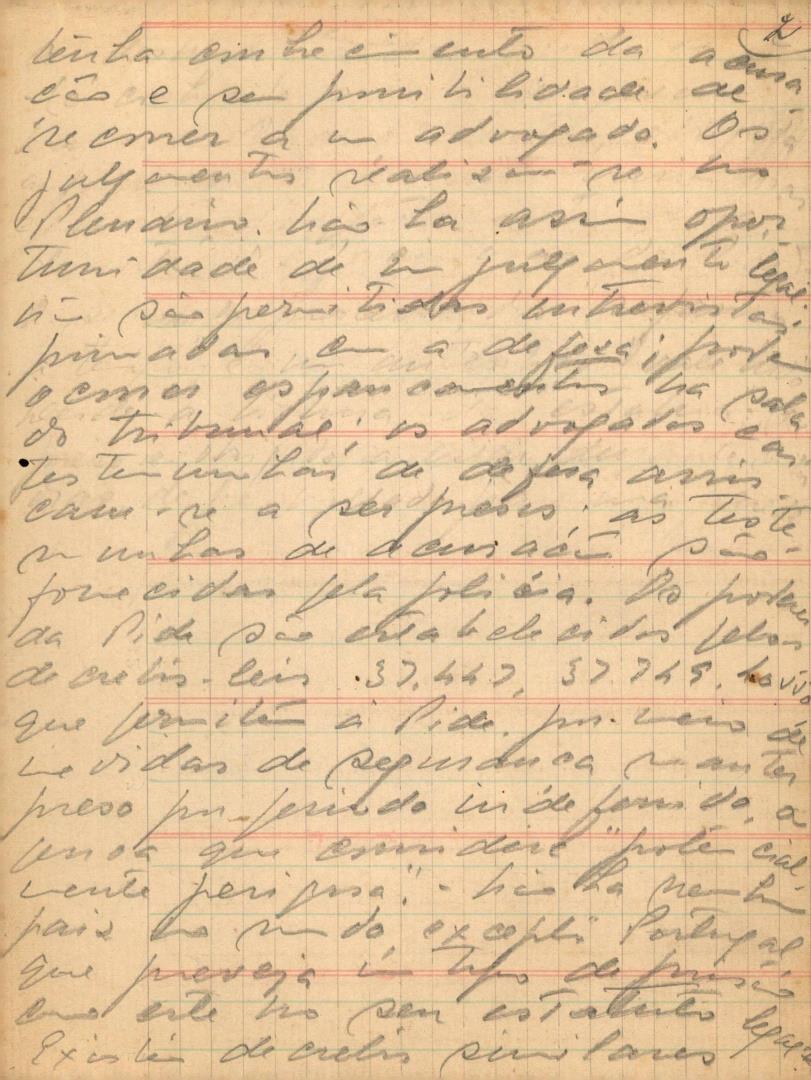 2
tenha conhecimento da acusa-
ção e sem possibilidade de
recorrer a um advogado. Os
julgamentos realizam-se no
Plenário. Não há assim opor-
tunidade de um julgamento legal:
não são permitidas entrevistas
privadas com a defesa; podem
ocorrer espancamentos na sala
do tribunal; os advogados e as
testemunhas de defesa arris-
cam-se a ser presos; as teste-
munhas de acusação são
fornecidas pela polícia. Os poderes
da Pide são estabelecidos pelos
decretos-leis 37.447, 37.749,
que permitem à Pide, por meio de
medidas de segurança manter
preso por período indefinido, a
pessoa que considere "potencial-
mente perigosa". - Não há nenhum
país no mundo, excepto Portugal
que preveja um tipo de prisão
como este no seu estatuto legal.
Existem decretos similares